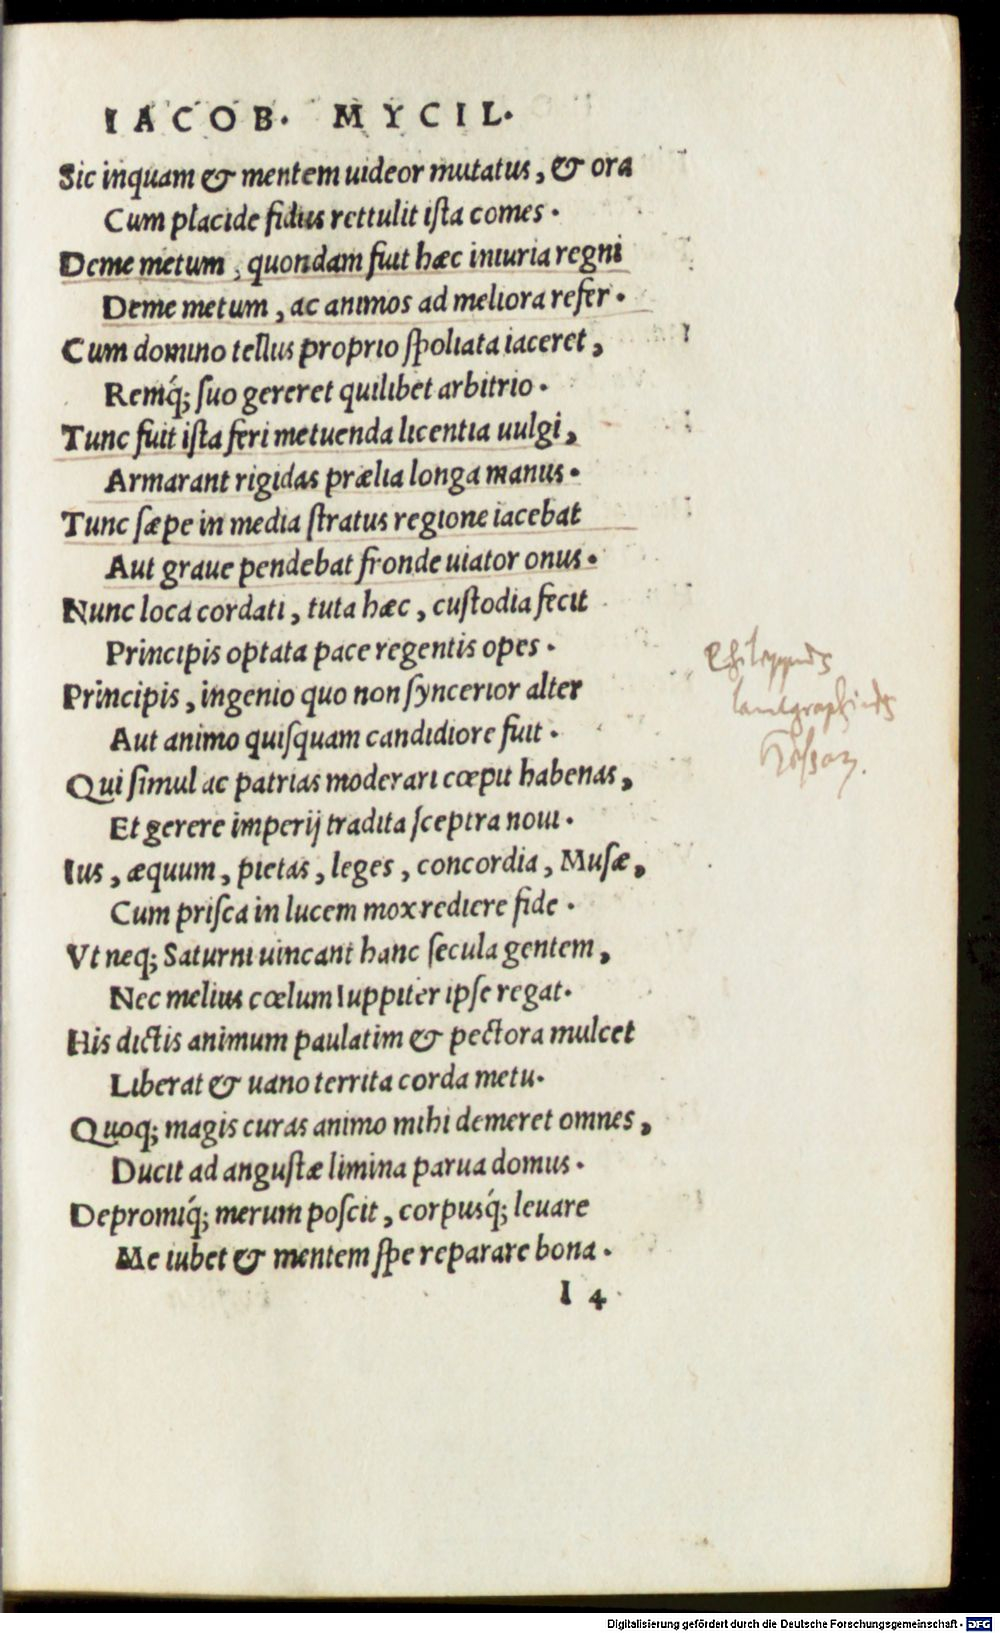 IACOB. MYCIL.
Sic inquam & mentem uideor mutatus, & ora
Cum placide fidus rettulit ista comes.
Deme metum, quondam fuit hæc iniuria regni
Deme metum, ac animos ad meliora refer.
Cum domino tellus proprio spoliata iaceret,
Remq́; suo gereret quilibet arbitrio.
Tunc fuit ista feri metuenda licentia uulgi,
Armarant rigidas prælia longa manus.
Tunc sæpe in media stratus regione iacebat
Aut graue pendebat fronde uiator onus.
Nunc loca cordati, tuta hæc, custodia fecit
Principis optata pace regentis opes.
Principis, ingenio quo non syncerior alter
Aut animo quisquam candidiore fuit.
Qui simul ac patrias moderari cœpit habenas,
Et gerere imperij tradita sceptra noui.
Ius, æquum, pietas, leges, concordia, Musæ,
Cum prisca in lucem mox rediere fide.
Vt neq; Saturni uincant hanc secula gentem,
Nec melius cœlum Iuppiter ipse regat.
His dictis animum paulatim & pectora mulcet
Liberat & uano territa corda metu.
Quoq; magis curas animo mihi demeret omnes,
Ducit ad angustæ limina parua domus.
Depromiq́; merum poscit, corpusq́; leuare
Me iubet & mentem spe reparare bona.
I 4
Philippus
lantgraphius
Digitalisierung gefördert durch die Deutsche Forschungsgemeinschaft - DFG